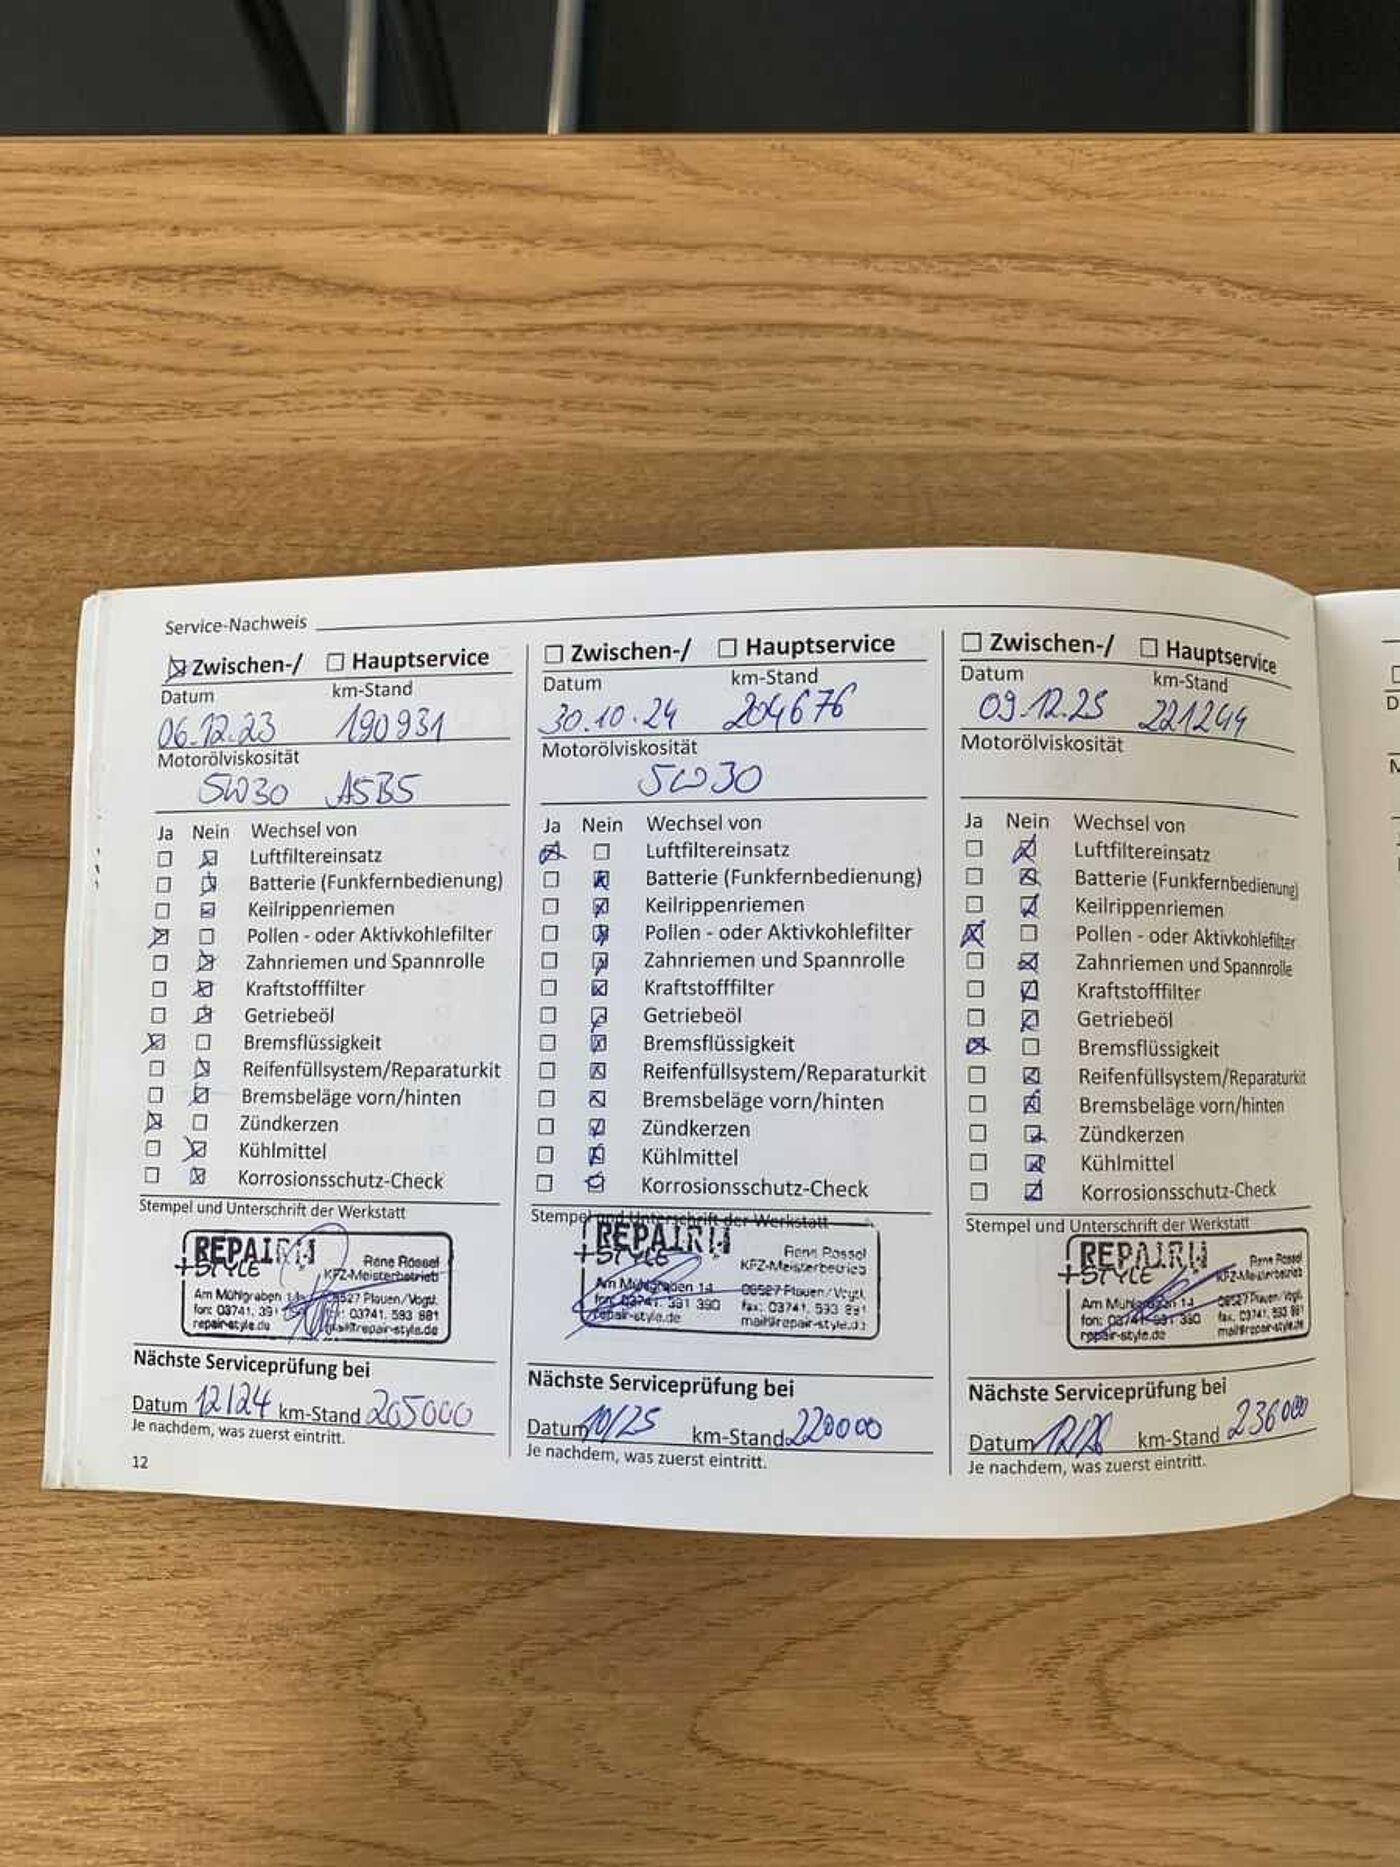 Service-Nachweis
☒ Zwischen-/ ☐ Hauptservice
Datum km-Stand
06.12.23 190931
Motorölviskosität
5W30 A5B5
Ja Nein Wechsel von
☐ ☒ Luftfiltereinsatz
☐ ☒ Batterie (Funkfernbedienung)
☐ ☒ Keilrippenriemen
☒ ☐ Pollen - oder Aktivkohlefilter
☐ ☒ Zahnriemen und Spannrolle
☐ ☒ Kraftstofffilter
☐ ☒ Getriebeöl
☒ ☐ Bremsflüssigkeit
☐ ☒ Reifenfüllsystem/Reparaturkit
☐ ☒ Bremsbeläge vorn/hinten
☒ ☐ Zündkerzen
☐ ☒ Kühlmittel
☐ ☒ Korrosionsschutz-Check
Stempel und Unterschrift der Werkstatt
REPAIR
+STYLE Rene Rossel
KFZ-Meisterbetrieb
Am Mühlgraben 14 08527 Plauen/Vogtl.
fon: 03741. 391 fax: 03741. 593 881
repair-style.de mail@repair-style.de
Nächste Serviceprüfung bei
Datum 12/24 km-Stand 205000
Je nachdem, was zuerst eintritt.
12
☐ Zwischen-/ ☐ Hauptservice
Datum km-Stand
30.10.24 204676
Motorölviskosität
5W30
Ja Nein Wechsel von
☒ ☐ Luftfiltereinsatz
☐ ☒ Batterie (Funkfernbedienung)
☐ ☒ Keilrippenriemen
☐ ☒ Pollen - oder Aktivkohlefilter
☐ ☒ Zahnriemen und Spannrolle
☐ ☒ Kraftstofffilter
☐ ☒ Getriebeöl
☐ ☒ Bremsflüssigkeit
☐ ☒ Reifenfüllsystem/Reparaturkit
☐ ☒ Bremsbeläge vorn/hinten
☐ ☒ Zündkerzen
☐ ☒ Kühlmittel
☐ ☒ Korrosionsschutz-Check
Stempel und Unterschrift der Werkstatt
REPAIR
+STYLE Rene Rossel
KFZ-Meisterbetrieb
Am Mühlgraben 14 08527 Plauen/Vogtl.
fon: 03741. 391 390 fax: 03741. 593 881
repair-style.de mail@repair-style.de
Nächste Serviceprüfung bei
Datum 10/25 km-Stand 220000
Je nachdem, was zuerst eintritt.
☐ Zwischen-/ ☐ Hauptservice
Datum km-Stand
09.12.25 221244
Motorölviskosität
Ja Nein Wechsel von
☐ ☒ Luftfiltereinsatz
☐ ☒ Batterie (Funkfernbedienung)
☐ ☒ Keilrippenriemen
☒ ☐ Pollen - oder Aktivkohlefilter
☐ ☒ Zahnriemen und Spannrolle
☐ ☒ Kraftstofffilter
☐ ☒ Getriebeöl
☒ ☐ Bremsflüssigkeit
☐ ☒ Reifenfüllsystem/Reparaturkit
☐ ☒ Bremsbeläge vorn/hinten
☐ ☒ Zündkerzen
☐ ☒ Kühlmittel
☐ ☒ Korrosionsschutz-Check
Stempel und Unterschrift der Werkstatt
REPAIR
+STYLE Rene Rossel
KFZ-Meisterbetrieb
Am Mühlgraben 14 08527 Plauen/Vogtl.
fon: 03741. 391 390 fax. 03741. 593 881
repair-style.de mail@repair-style.de
Nächste Serviceprüfung bei
Datum 12/26 km-Stand 236000
Je nachdem, was zuerst eintritt.